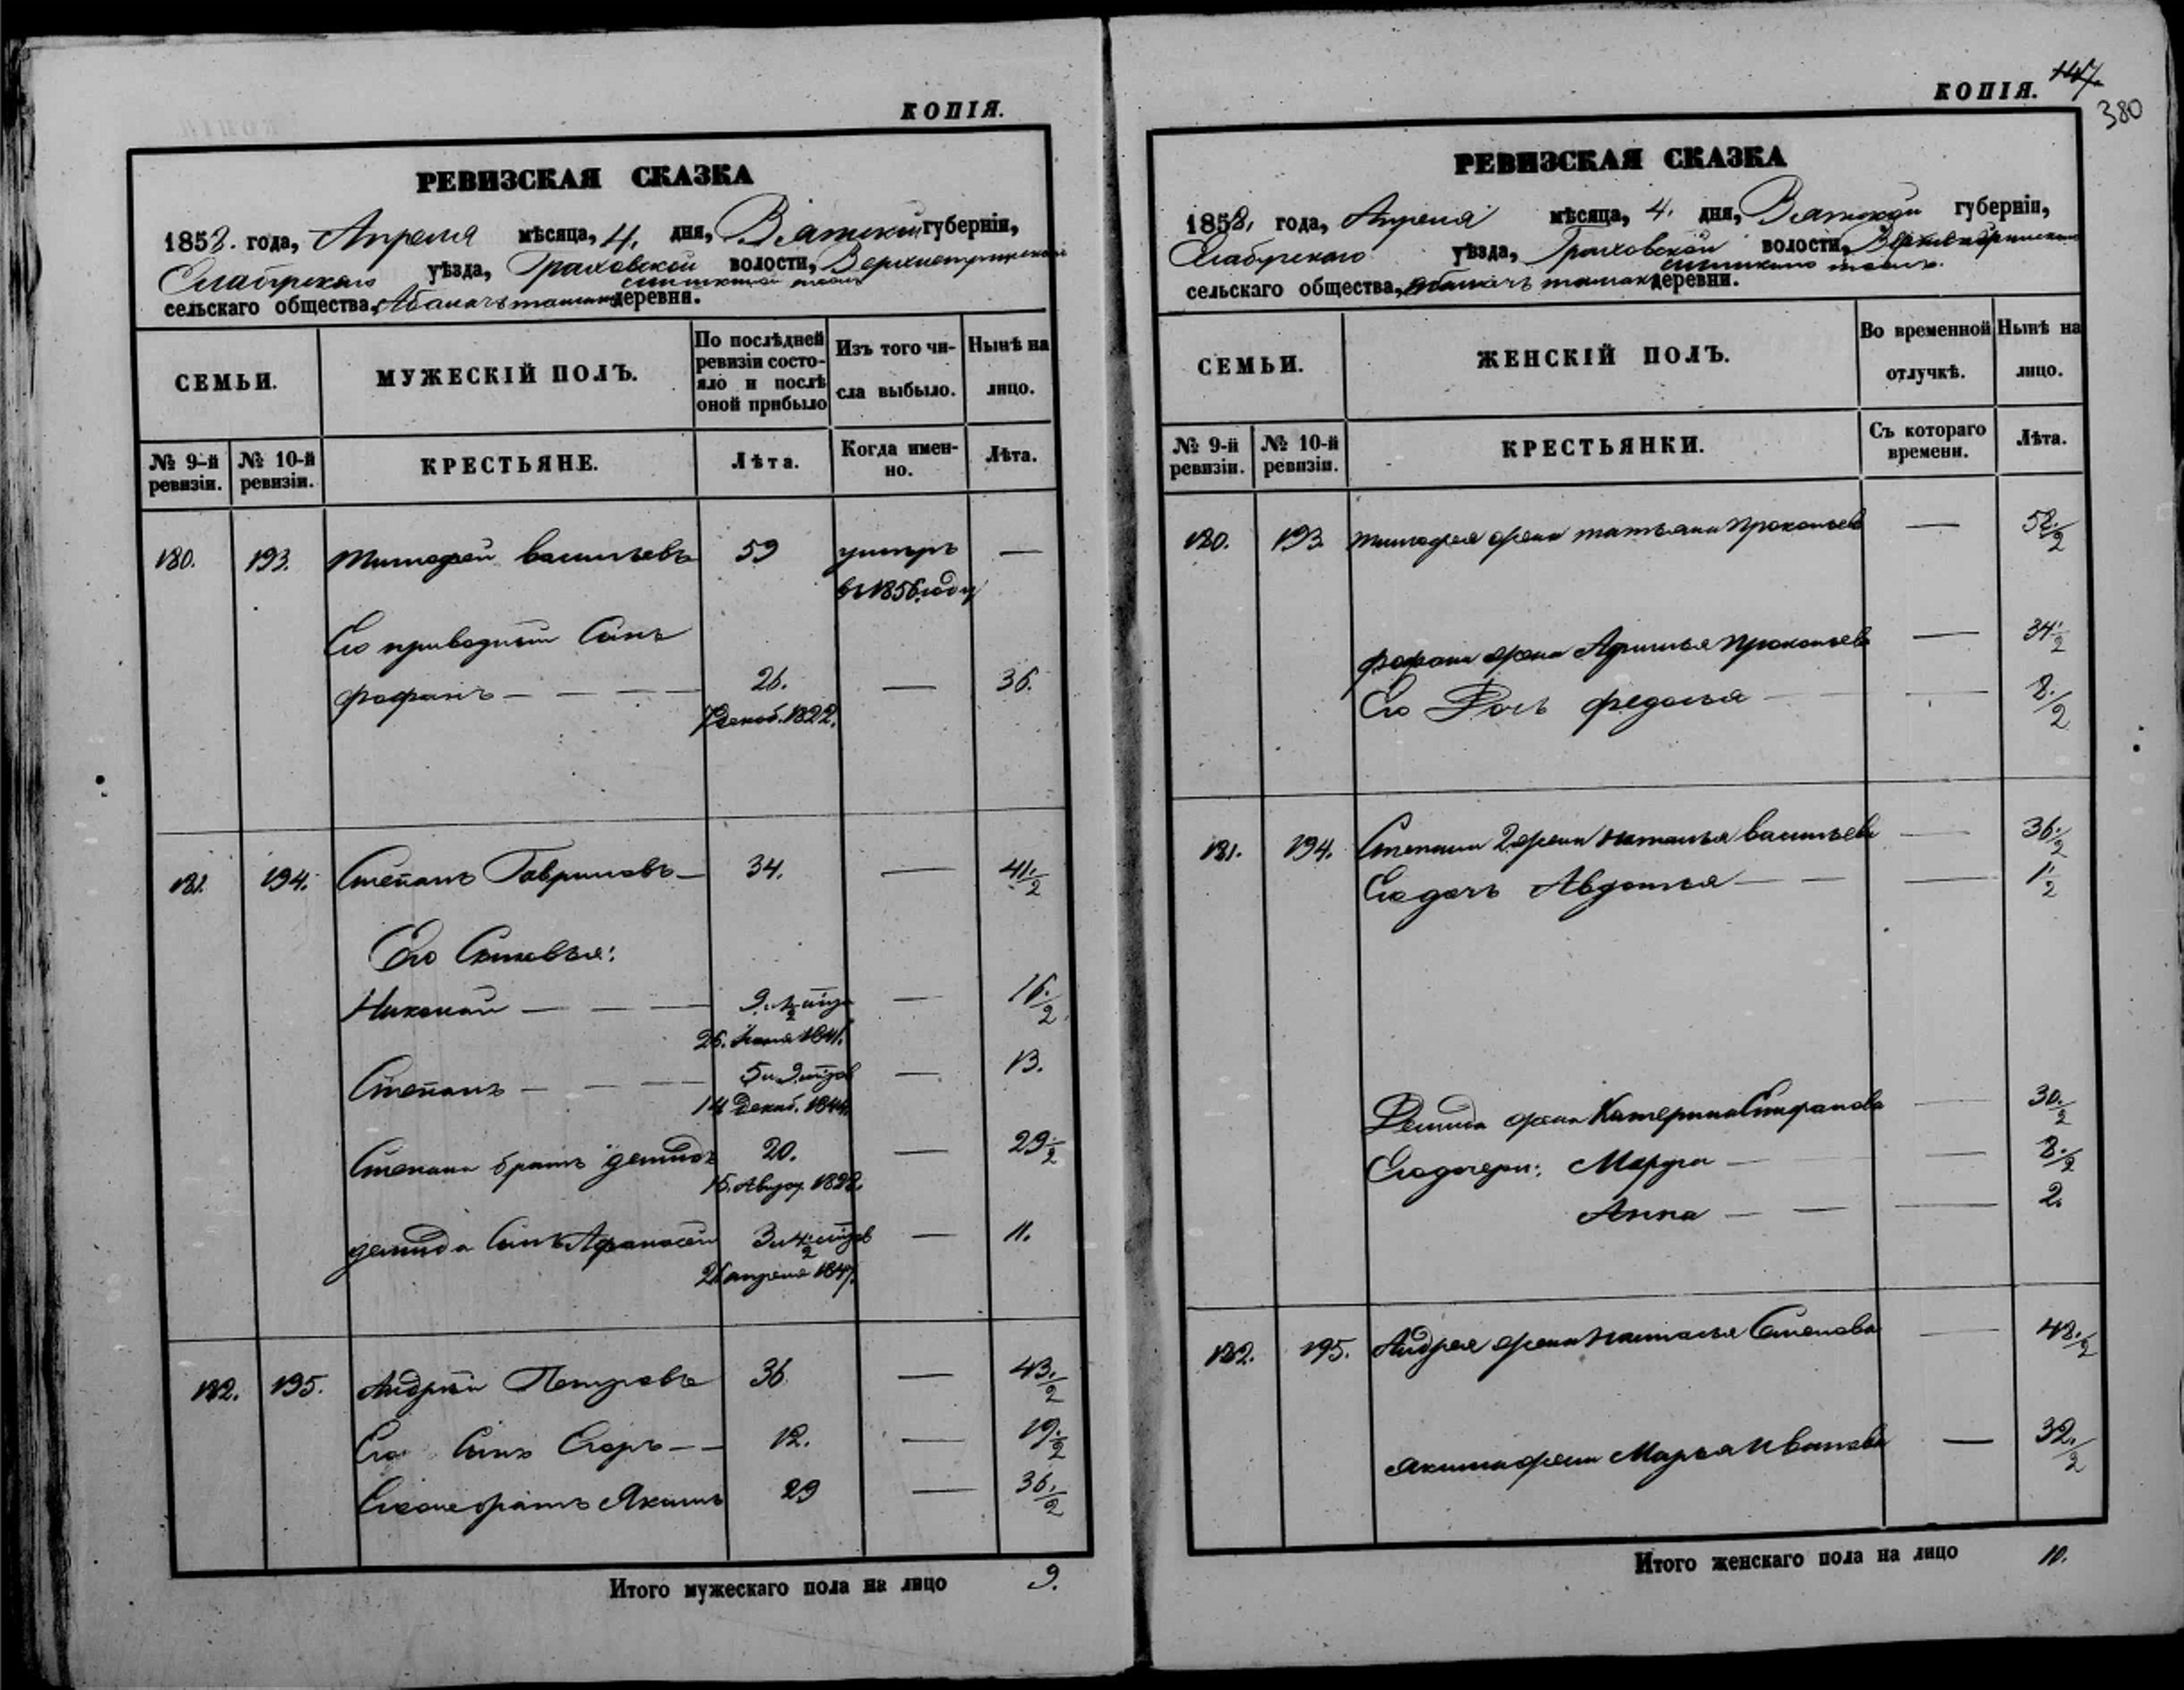 КОПІЯ.
РЕВИЗСКАЯ СКАЗКА
1858. года, Апреля мѣсяца, 4. дня, Вятской губерніи,
Елабугскаго уѣзда, Граховской волости,
сельскаго общества, деревни.
СЕМЬИ.
МУЖЕСКІЙ ПОЛЪ.
По послѣдней ревизіи состояло и послѣ оной прибыло
Изъ того числа выбыло.
Нынѣ на лицо.
№ 9-й ревизіи.
№ 10-й ревизіи.
КРЕСТЬЯНЕ.
Лѣта.
Когда именно.
Лѣта.
180. 193. Тимофей Васильевъ 59 умеръ —
въ 1856 году
Его приводный Сынъ
Фофанъ — — — — 26. — 36.
7 декаб. 1822.
181. 194. Степанъ Гавриловъ — 34. — 41 ½
Его Сыновья:
Николай — — — 9. — 16 ½
26. 1841.
Степанъ — — — 5 и 9 — 13.
14 Декаб. 1844.
Степана братъ Демидъ 20. — 29 ½
15. Август 1828.
Демида Сынъ Афанасей 3 и 4 — 11.
26 апреля 1847.
182. 195. Андрей Петровъ 36 — 43. ½
Его Сынъ Егоръ — — 12. — 19. ½
братъ Якимъ 29 — 36. ½
Итого мужескаго пола на лицо 9.
КОПІЯ. 147
380
РЕВИЗСКАЯ СКАЗКА
1858, года, Апреля мѣсяца, 4. дня, Вятской губерніи,
Елабугскаго уѣзда, Граховской волости,
сельскаго общества, деревни.
СЕМЬИ.
ЖЕНСКІЙ ПОЛЪ.
Во временной отлучкѣ.
Нынѣ на лицо.
№ 9-й ревизіи.
№ 10-й ревизіи.
КРЕСТЬЯНКИ.
Съ котораго времени.
Лѣта.
180. 193 Тимофея жена Татьяна Прокопьева — 58. ½
Фофана жена Прокопьева — 34 ½
Его Дочь Федосья — — 8. ½
181. 194. Степана 2 жена Наталья Васильева — 36. ½
Его дочь Авдотья — — — 1 ½
Демида жена Катерина Стифанова — 30. ½
Его дочери: Марфа — — 8. ½
Анна — — — 2.
182. 195. Андрея жена Наталья Семенова — 48. ½
Якима жена Марья Иванова — 32. ½
Итого женскаго пола на лицо 10.